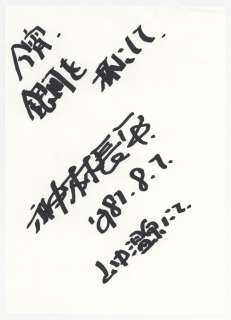 今宵、
銀河を 杯にして
神林長平
1987.8.7.
山中温泉にて